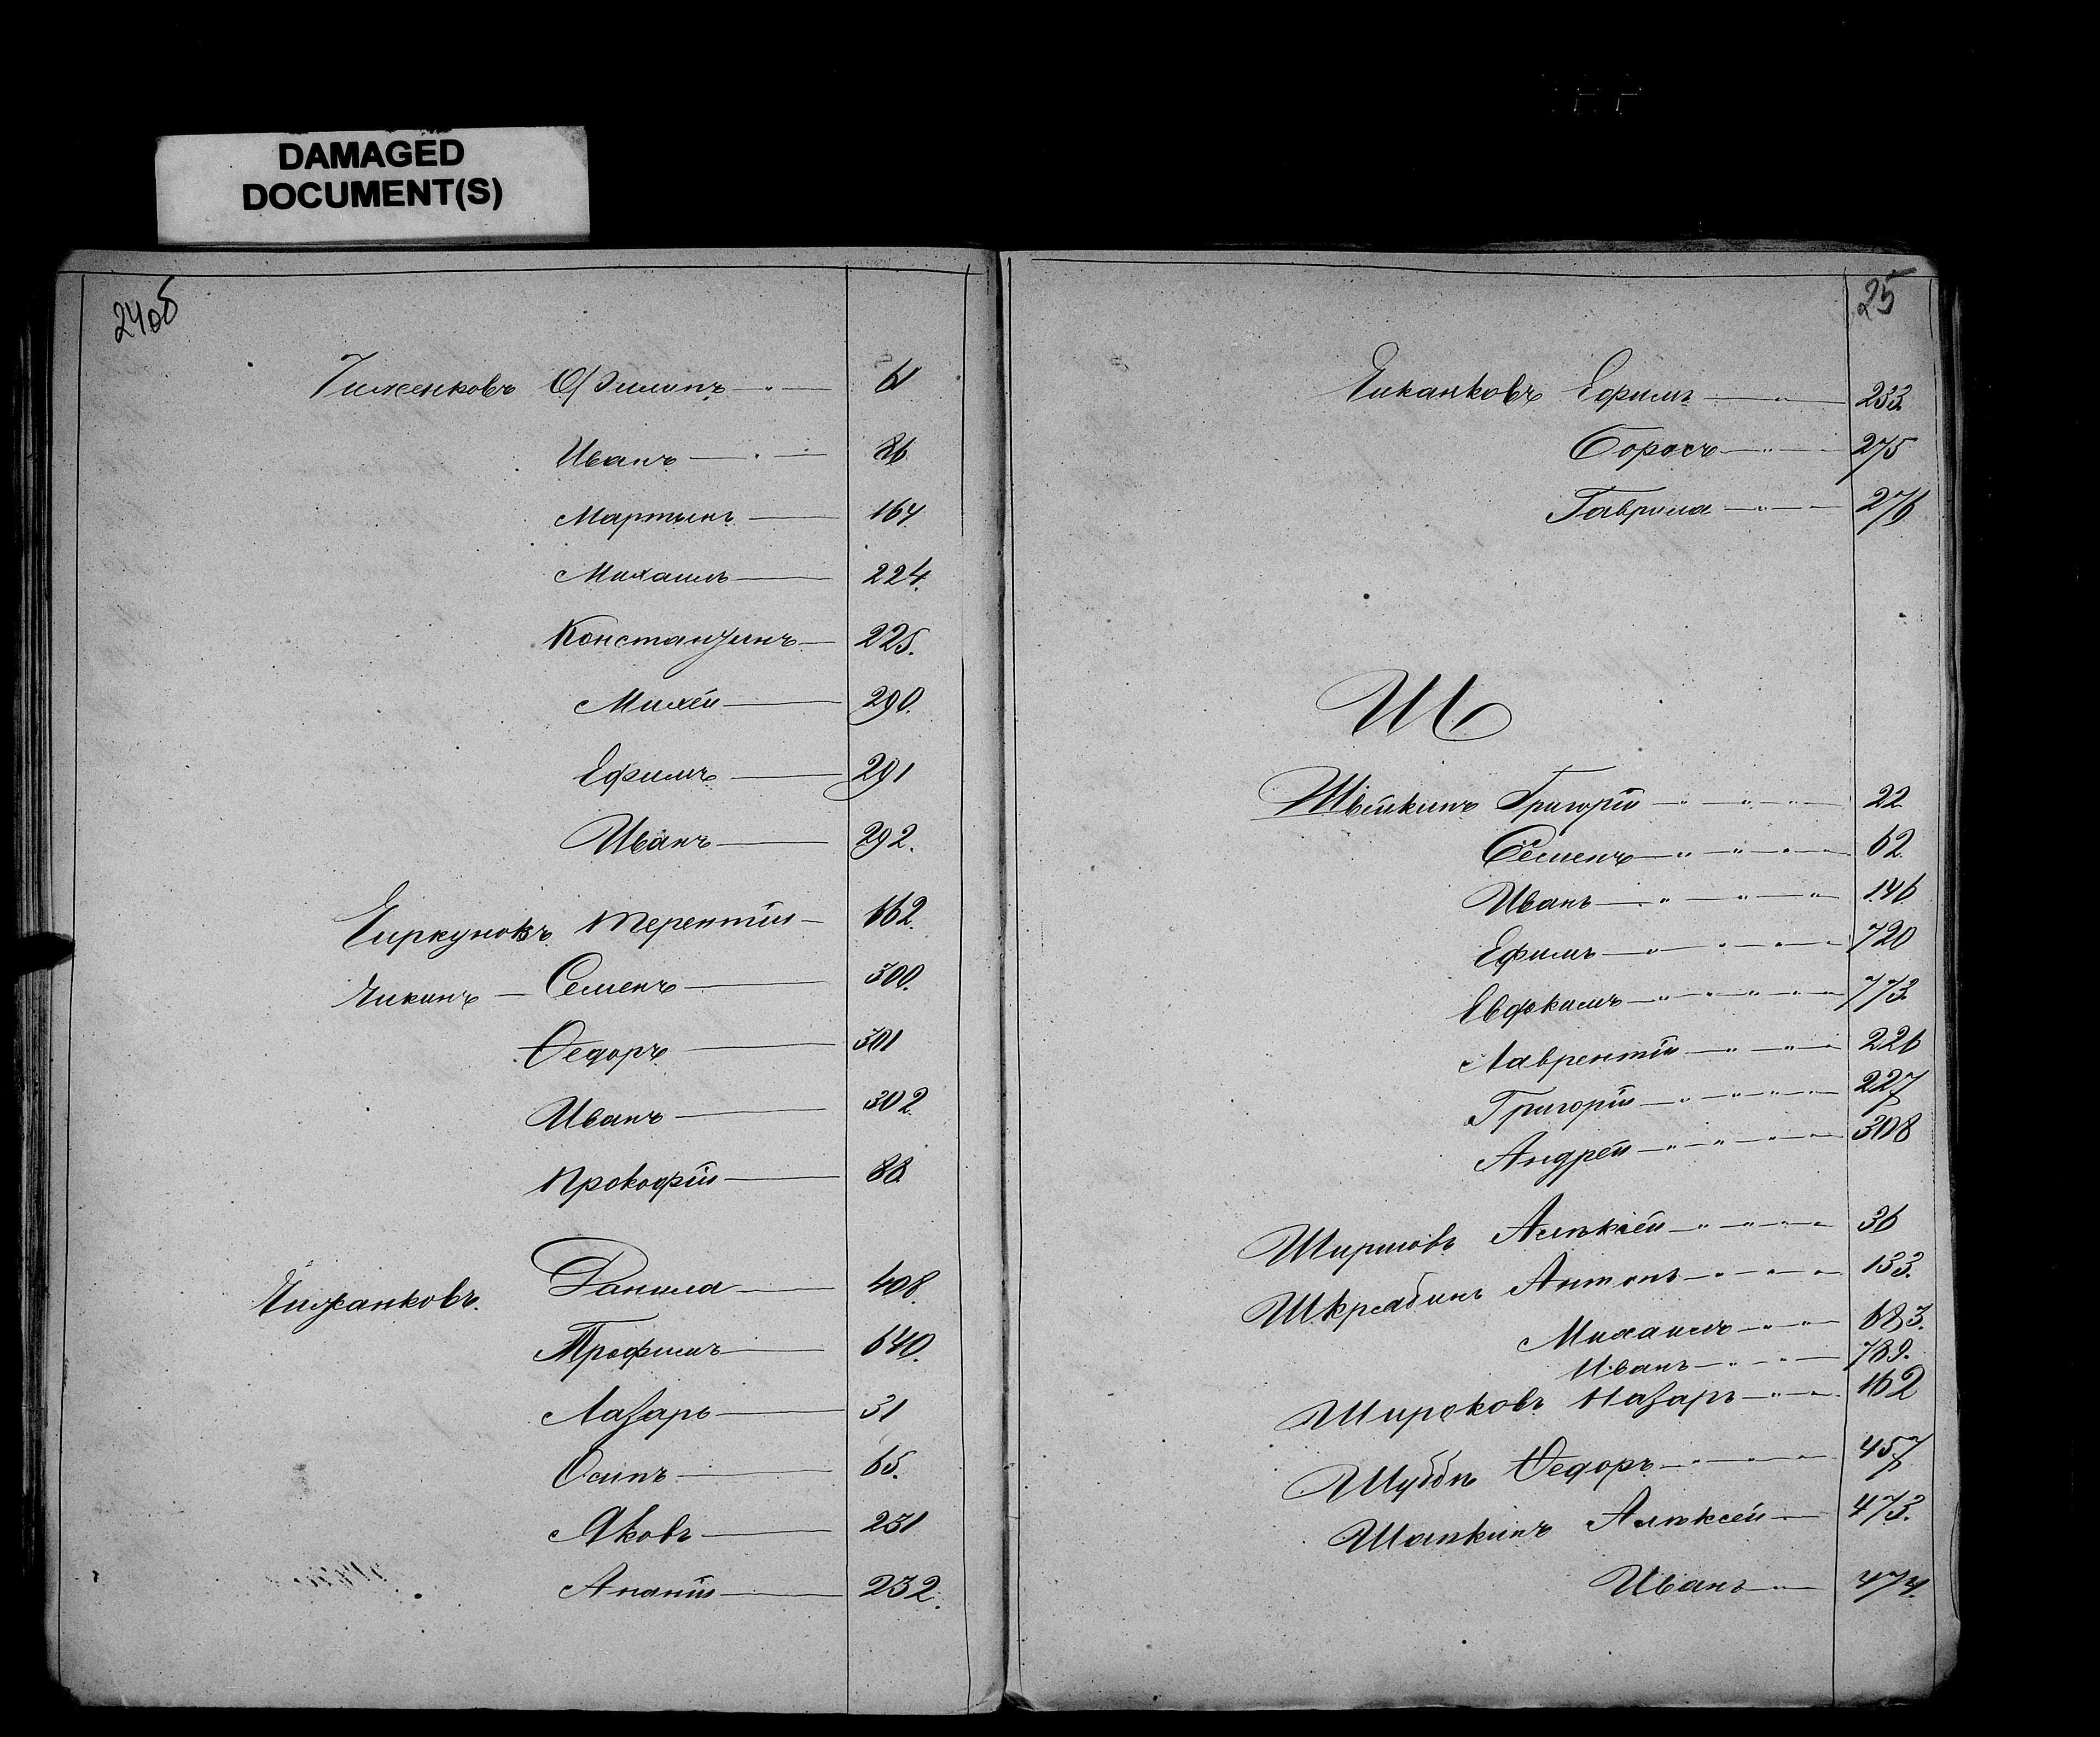 DAMAGED
DOCUMENT(S)
24об
Чиженковъ Филипъ 61
Иванъ 86
Мартынъ 164
Михаилъ 224.
Константинъ 225.
Михей 290.
Ефимъ 291
Иванъ 292.
Чиркуновъ Терентій 162.
Чикинъ Семенъ 300.
Ѳедоръ 301
Иванъ 302
Прокофій 88
Чижанковъ. Данила 408.
Трофимъ 640.
Лазарь 31
Осипъ 65.
Яковъ 231
Ананій 232.
25
Чиканковъ Ефимъ 233.
Борисъ 275
Гаврила 276
Ш
Швейкинъ Григорій 22
Семенъ 62
Иванъ 146
Ефимъ 720
Евдокимъ 773.
Лаврентій 226
Григорій 227
Андрей 308
Ширшовъ Алексей 36
Шкрабинъ Антонъ 133.
Михаилъ 683.
Иванъ 789.
Широковъ Назаръ 162
Ѳедоръ 457
Шапкинъ Алексей 473.
Иванъ 474.